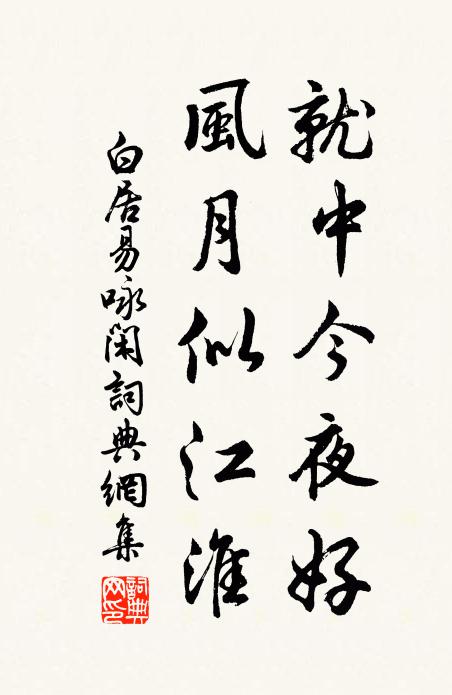 就中今夜好
風月似江淮
白居易咏閑詞典網集
詞典
网印